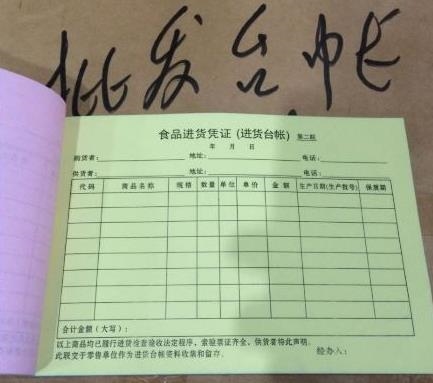 批发台帐
食品进货凭证(进货台帐) 第二联
年 月 日
购货者: 地址: 电话:
供货者: 地址: 电话:
代码 商品名称 规格 数量 单位 单价 金额 生产日期(生产批号) 保质期
合计金额(大写):
以上商品均已履行进货检查验收法定程序、索验票证齐全、供货者特此声明。
此联交于零售单位作为进货台帐资料收集和留存。 经办人: